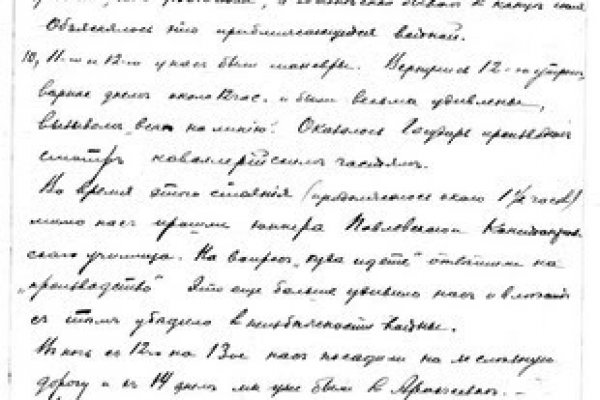 Объяснялось это приближающейся войной.
10, 11-го и 12-го у нас были маневры. Вернулись 12-го утром,
вернее днем около 12 час. и были весьма удивлены,
вызовом „всех на линию". Оказалось Государь производит
смотр кавалерийским частям.
Во время этого стояния (продолжалось около 1½ часов)
мимо нас прошли юнкера Павловского
училища. На вопрос „куда идете" отвечали на
„производство" Это еще больше удивило нас и
с тем убедило в неизбежности войны.
В ночь с 12го на 13ое нас посадили на железную
дорогу и в 14 днем мы уже были в